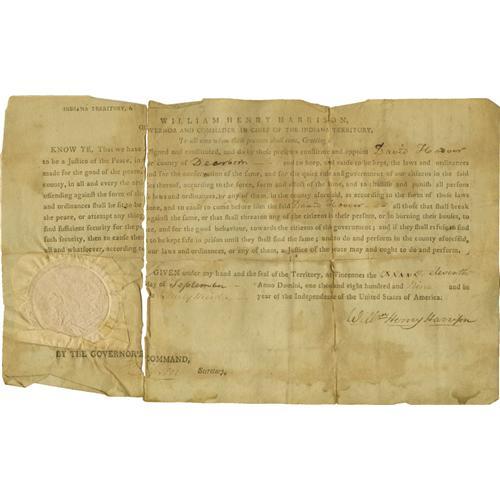 INDIANA TERRITORY,
WILLIAM HENRY HARRISON,
GOVERNOR AND COMMANDER IN CHIEF OF THE INDIANA TERRITORY,
To all whom these presents shall come, Greeting:
KNOW YE, That we have assigned and constituted, and do by these presents constitute and appoint David Hoover
to be a Justice of the Peace, in the county of Dearborn and to keep, and cause to be kept, the laws and ordinances
made for the good of the peace, and for the conservation of the same, and for the quiet rule and government of our citizens in the said
county, in all and every the according to the force, form and effect of the same, and to chastise and punish all persons
offending against the form of those laws by or any of them, in the county aforesaid, as according to the form of those laws
and ordinances shall be to cause to come before him the said David Hoover all those that shall break
the peace, or attempt any thing against the same, or that shall threaten any of the citizens in their persons, or in burning their houses, to
find sufficient security for the peace, and for the good behaviour, towards the citizens of the government; and if they shall refuse to find
such security, then to cause them to be kept safe in prison until they shall find the same; and to do and perform in the county aforesaid,
all our laws and ordinances, or any of them, as a Justice of the Peace may and ought to do and perform.
GIVEN under my hand and the seal of the Territory, at Vincennes the eleventh
day of September Anno Domini, one thousand eight hundred and Nine and in
year of the Independence of the United States of America.
Will Henry Harrison
BY THE GOVERNOR'S COMMAND,
Secretary.